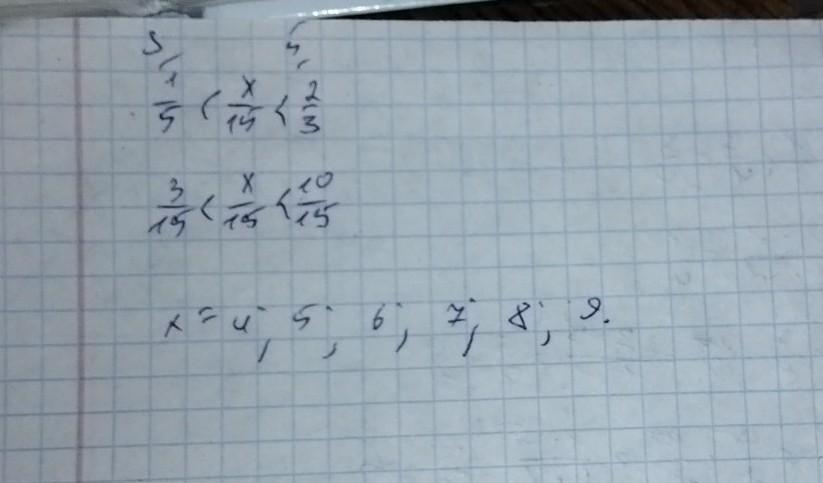 3 5
1/5 < x/15 < 2/3
3/15 < x/15 < 10/15
x = 4; 5; 6; 7; 8; 9.